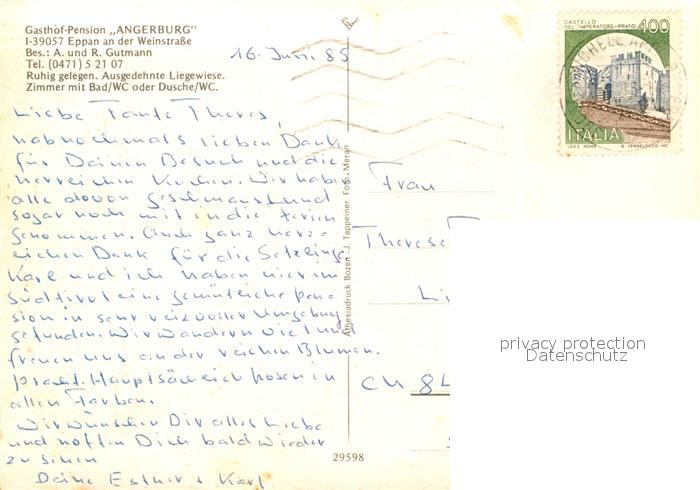 Gasthof-Pension „ANGERBURG"
I-39057 Eppan an der Weinstraße
Bes.: A. und R. Gutmann
Tel. (0471) 5 21 07
Ruhig gelegen. Ausgedehnte Liegewiese.
Zimmer mit Bad/WC oder Dusche/WC.
16. Juni 85
Liebe Tante Theres,
hab nochmals lieben Dank
für Deinen Besuch und die
herrlichen Kuchen. Wir haben
alle davon geschmaust und
sogar noch mit in die Ferien
genommen. Auch ganz herz-
lichen Dank für die Setzlinge
Karl und ich haben hier im
Südtirol eine gemütliche Pen-
sion in sehr reizvoller Umgebung
gefunden. Wir wandern viel und
freuen uns an der reichen Blumen-
pracht. Hauptsächlich hosen in
allen Farben.
Wir wünschen Dir alles Liebe
und hoffen Dich bald wieder
zu sehen
Deine Esther + Karl
Athesiadruck Bozen - J. Tappeiner Foto, Meran
29598
Frau
Therese
Li
CH 84
CASTELLO
DELL'IMPERATORE-PRATO
400
ITALIA
I.P.Z.S. ROMA
privacy protection
Datenschutz